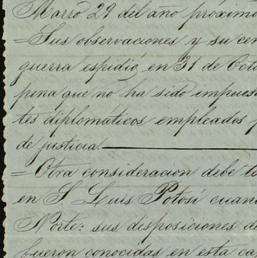 Marzo 29 del año próximo
=Sus observaciones y su cen
guerra espidio en 31 de Octo
pena que no ha sido impues
tes diplomáticos empleados
de justicia
= Otra consideracion debe t
en S. Luis Potosí cuan
Norte: sus disposiciones de
fueron conocidas en esta ca